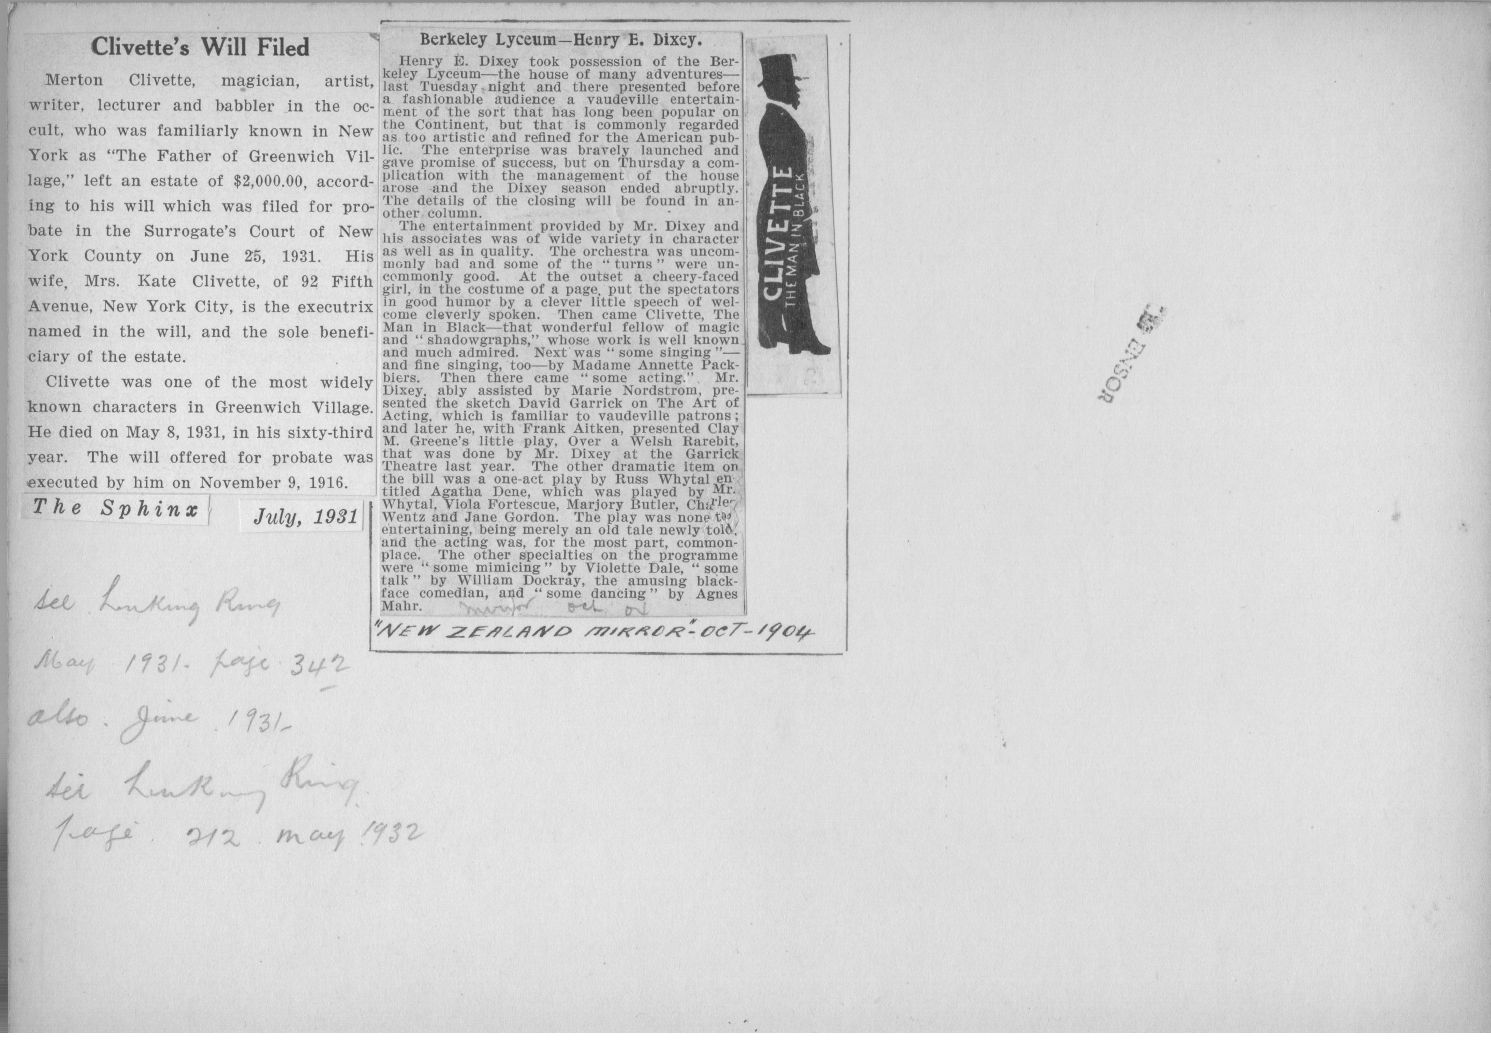 Clivette's Will Filed
Merton Clivette, magician, artist,
writer, lecturer and babbler in the oc-
cult, who was familiarly known in New
York as "The Father of Greenwich Vil-
lage," left an estate of $2,000.00, accord-
ing to his will which was filed for pro-
bate in the Surrogate's Court of New
York County on June 25, 1931. His
wife, Mrs. Kate Clivette, of 92 Fifth
Avenue, New York City, is the executrix
named in the will, and the sole benefi-
ciary of the estate.
Clivette was one of the most widely
known characters in Greenwich Village.
He died on May 8, 1931, in his sixty-third
year. The will offered for probate was
executed by him on November 9, 1916.
The Sphinx
July, 1931
see Linking Ring
May 1931- page 342
also. June 1931-
see Linking Ring
page. 212. may. 1932
Berkeley Lyceum—Henry E. Dixey.
Henry E. Dixey took possession of the Ber-
keley Lyceum—the house of many adventures—
last Tuesday night and there presented before
a fashionable audience a vaudeville entertain-
ment of the sort that has long been popular on
the Continent, but that is commonly regarded
as too artistic and refined for the American pub-
lic. The enterprise was bravely launched and
gave promise of success, but on Thursday a com-
plication with the management of the house
arose and the Dixey season ended abruptly.
The details of the closing will be found in an-
other column.
The entertainment provided by Mr. Dixey and
his associates was of wide variety in character
as well as in quality. The orchestra was uncom-
monly bad and some of the "turns" were un-
commonly good. At the outset a cheery-faced
girl, in the costume of a page, put the spectators
in good humor by a clever little speech of wel-
come cleverly spoken. Then came Clivette, The
Man in Black—that wonderful fellow of magic
and "shadowgraphs," whose work is well known
and much admired. Next was "some singing"—
and fine singing, too—by Madame Annette Pack-
biers. Then there came "some acting." Mr.
Dixey, ably assisted by Marie Nordstrom, pre-
sented the sketch David Garrick on The Art of
Acting, which is familiar to vaudeville patrons;
and later he, with Frank Aitken, presented Clay
M. Greene's little play, Over a Welsh Rarebit,
that was done by Mr. Dixey at the Garrick
Theatre last year. The other dramatic item on
the bill was a one-act play by Russ Whytal en-
titled Agatha Dene, which was played by Mr.
Whytal, Viola Fortescue, Marjory Butler, Charles
Wentz and Jane Gordon. The play was none too
entertaining, being merely an old tale newly told,
and the acting was, for the most part, common-
place. The other specialties on the programme
were "some mimicing" by Violette Dale, "some
talk" by William Dockray, the amusing black-
face comedian, and "some dancing" by Agnes
Mahr.
oct
"NEW ZEALAND MIRROR"-OCT-1904
CLIVETTE
THE MAN IN BLACK
ENSOR